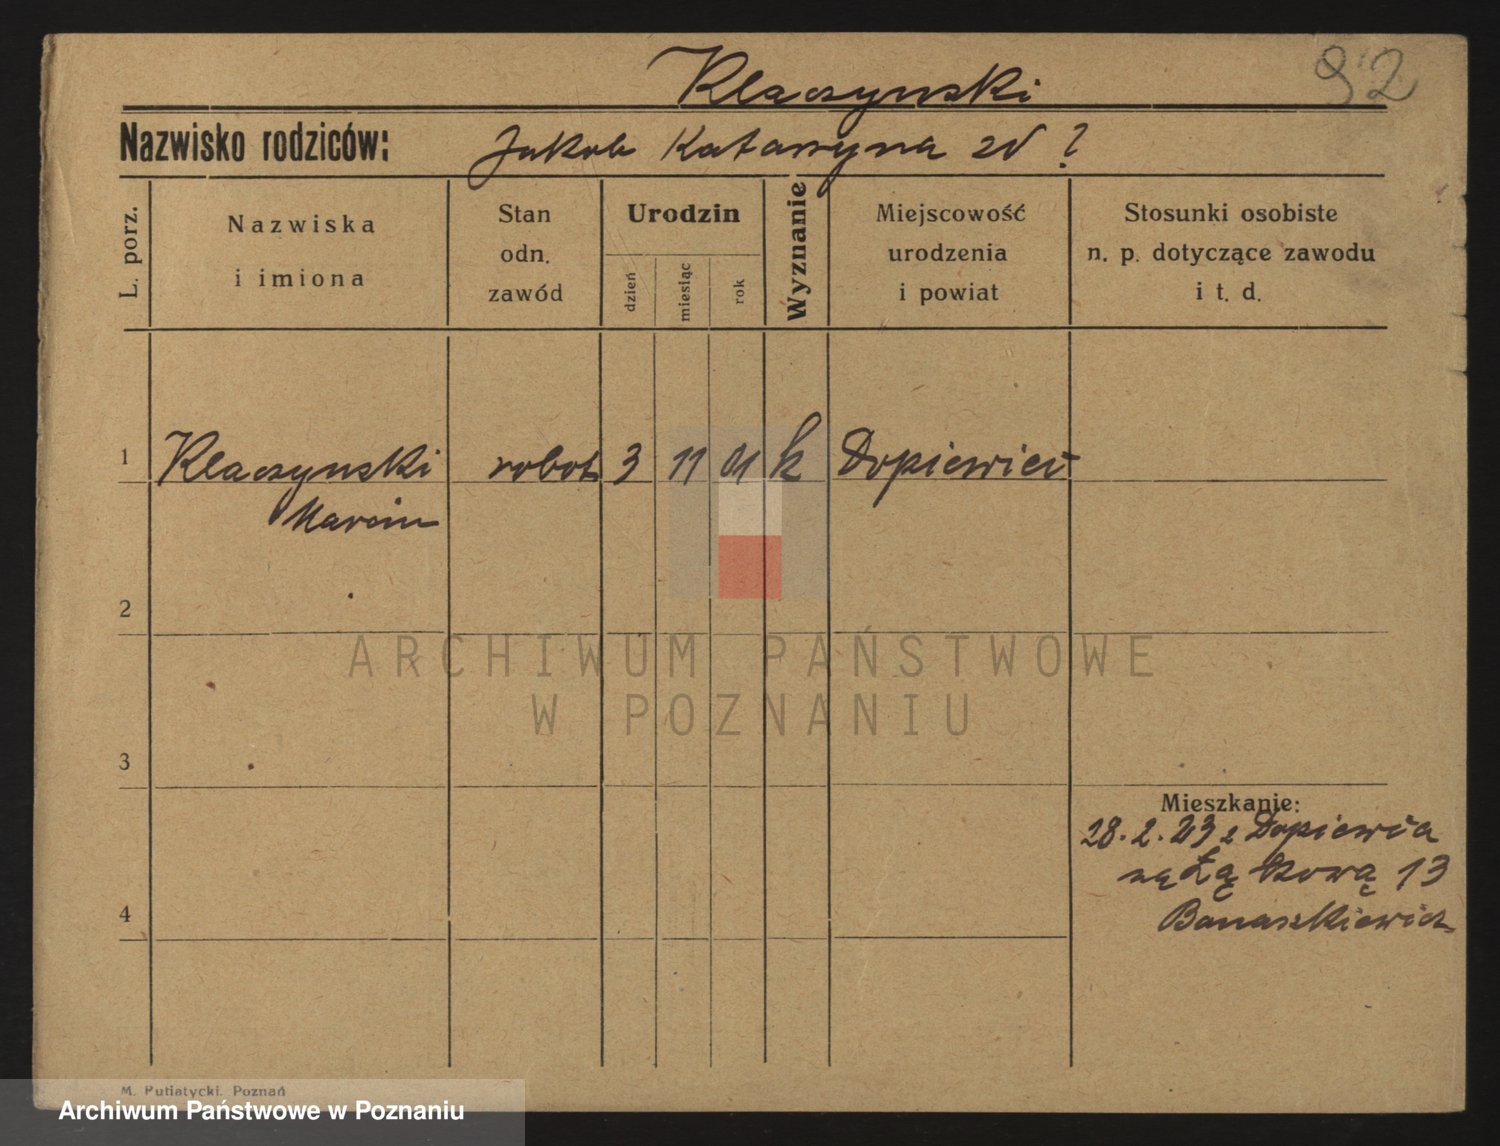 92
Klaczynski
Nazwisko rodziców: Jakob Katarzyna zd ?
L. porz.
Nazwiska i imiona
Stan odn. zawód
Urodzin
dzień
miesiąc
rok
Wyznanie
Miejscowość urodzenia i powiat
Stosunki osobiste n. p. dotyczące zawodu i t. d.
1 Klaczynski robot 3 11 01 k Dopiewiec
Marcin
2
3
Mieszkanie:
28. 2. 23 z Dopiewca
na Łąkową 13
4
Banaszkiewicz
M. Putiatycki, Poznań
ARCHIWUM PAŃSTWOWE
W POZNANIU
Archiwum Państwowe w Poznaniu